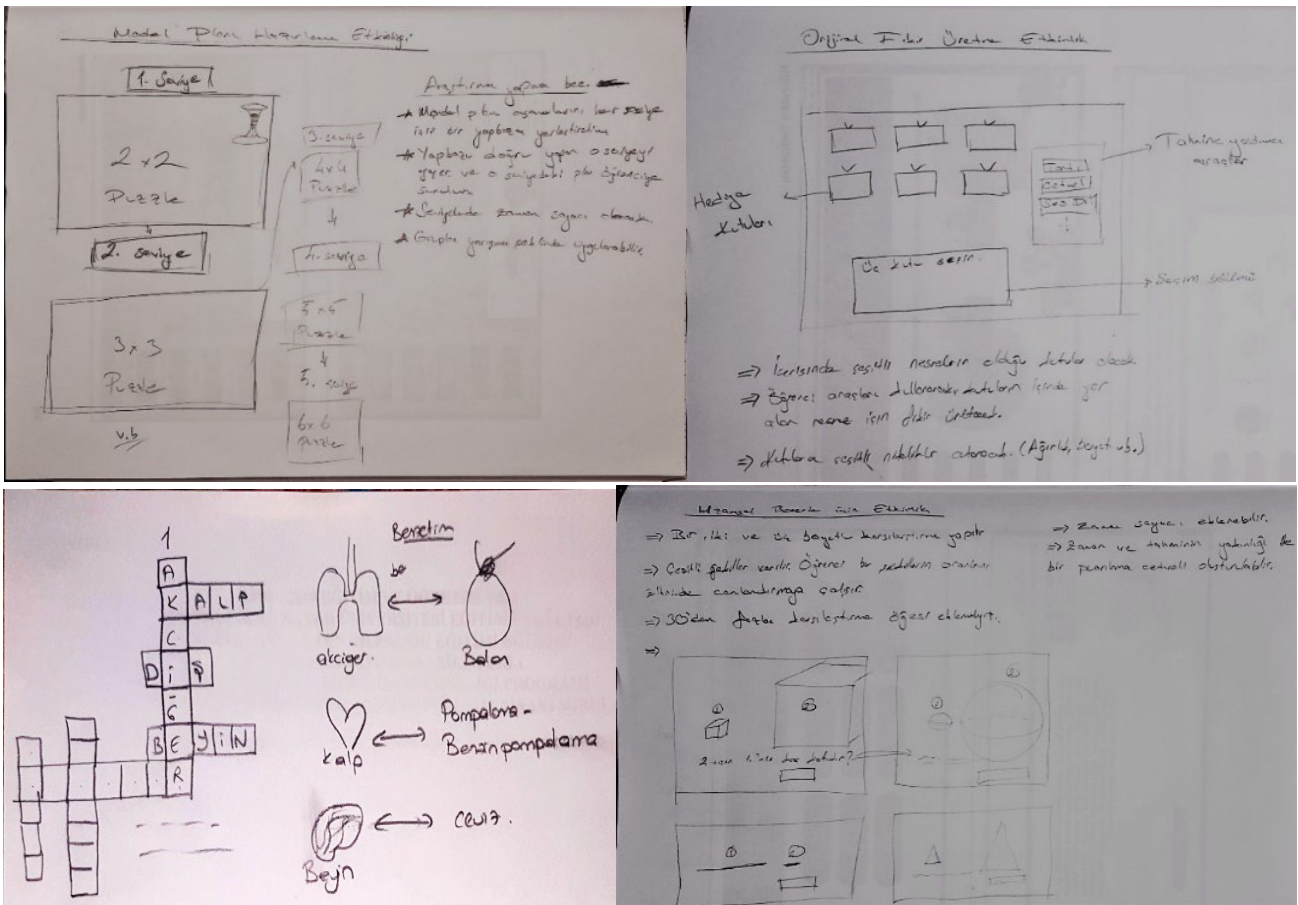 Model Plan Hazırlama Etkinliği
1. Seviye
2x2
Puzzle
2. seviye
3x3
Puzzle
v.b
3. seviye
4x4
Puzzle
4. seviye
5x5
Puzzle
5. seviye
6x6
puzzle
Araştırma yapma bec.
★ Model plan aşamalarını her seviye
için bir yapboza yerleştirelim
★ Yapbozu doğru yapan o seviyeyi
geçer ve o seviyedeki plan öğrenciye
sunulur.
★ Seviyelerde zaman sayacı olacak.
★ Gruplar yarışma şeklinde uygulanabilir.
Orijinal Fikir Üretme Etkinlik
Hediye
Kutuları
Cetvel
Tahmine yardımcı
araçlar
Üç kutu seçin.
Seçim bölümü
⇒ İçerisinde çeşitli nesnelerin olduğu kutular olacak.
⇒ Öğrenci araçları kullanarak, kutuların içinde yer
alan nesne için fikir üretecek.
⇒ Kutulara çeşitli nitelikler atanacak. (Ağırlık, boyut vb.)
1
A
KALP
C
DİŞ
Ğ
BEYİN
R
Benzetim
be
akciğer.
Balon
Kalp
Pompalama -
Benzin pompalama
Beyin
ceviz.
Uzamsal Beceriler için Etkinlik
⇒ Bir, iki ve üç boyutlu karşılaştırma yapılır
⇒ Çeşitli şekiller verilir. Öğrenci bu şekillerin oranlarını
zihninde canlandırmaya çalışır.
⇒ 30'dan fazla karşılaştırma öğesi eklemeliyiz.
⇒
⇒ Zaman sayacı eklenebilir.
⇒ Zaman ve tahminin yakınlığı ile
bir puanlama cetveli oluşturulabilir.
1
2
2 nin içinde kaç tanedir?
1
2
1
2